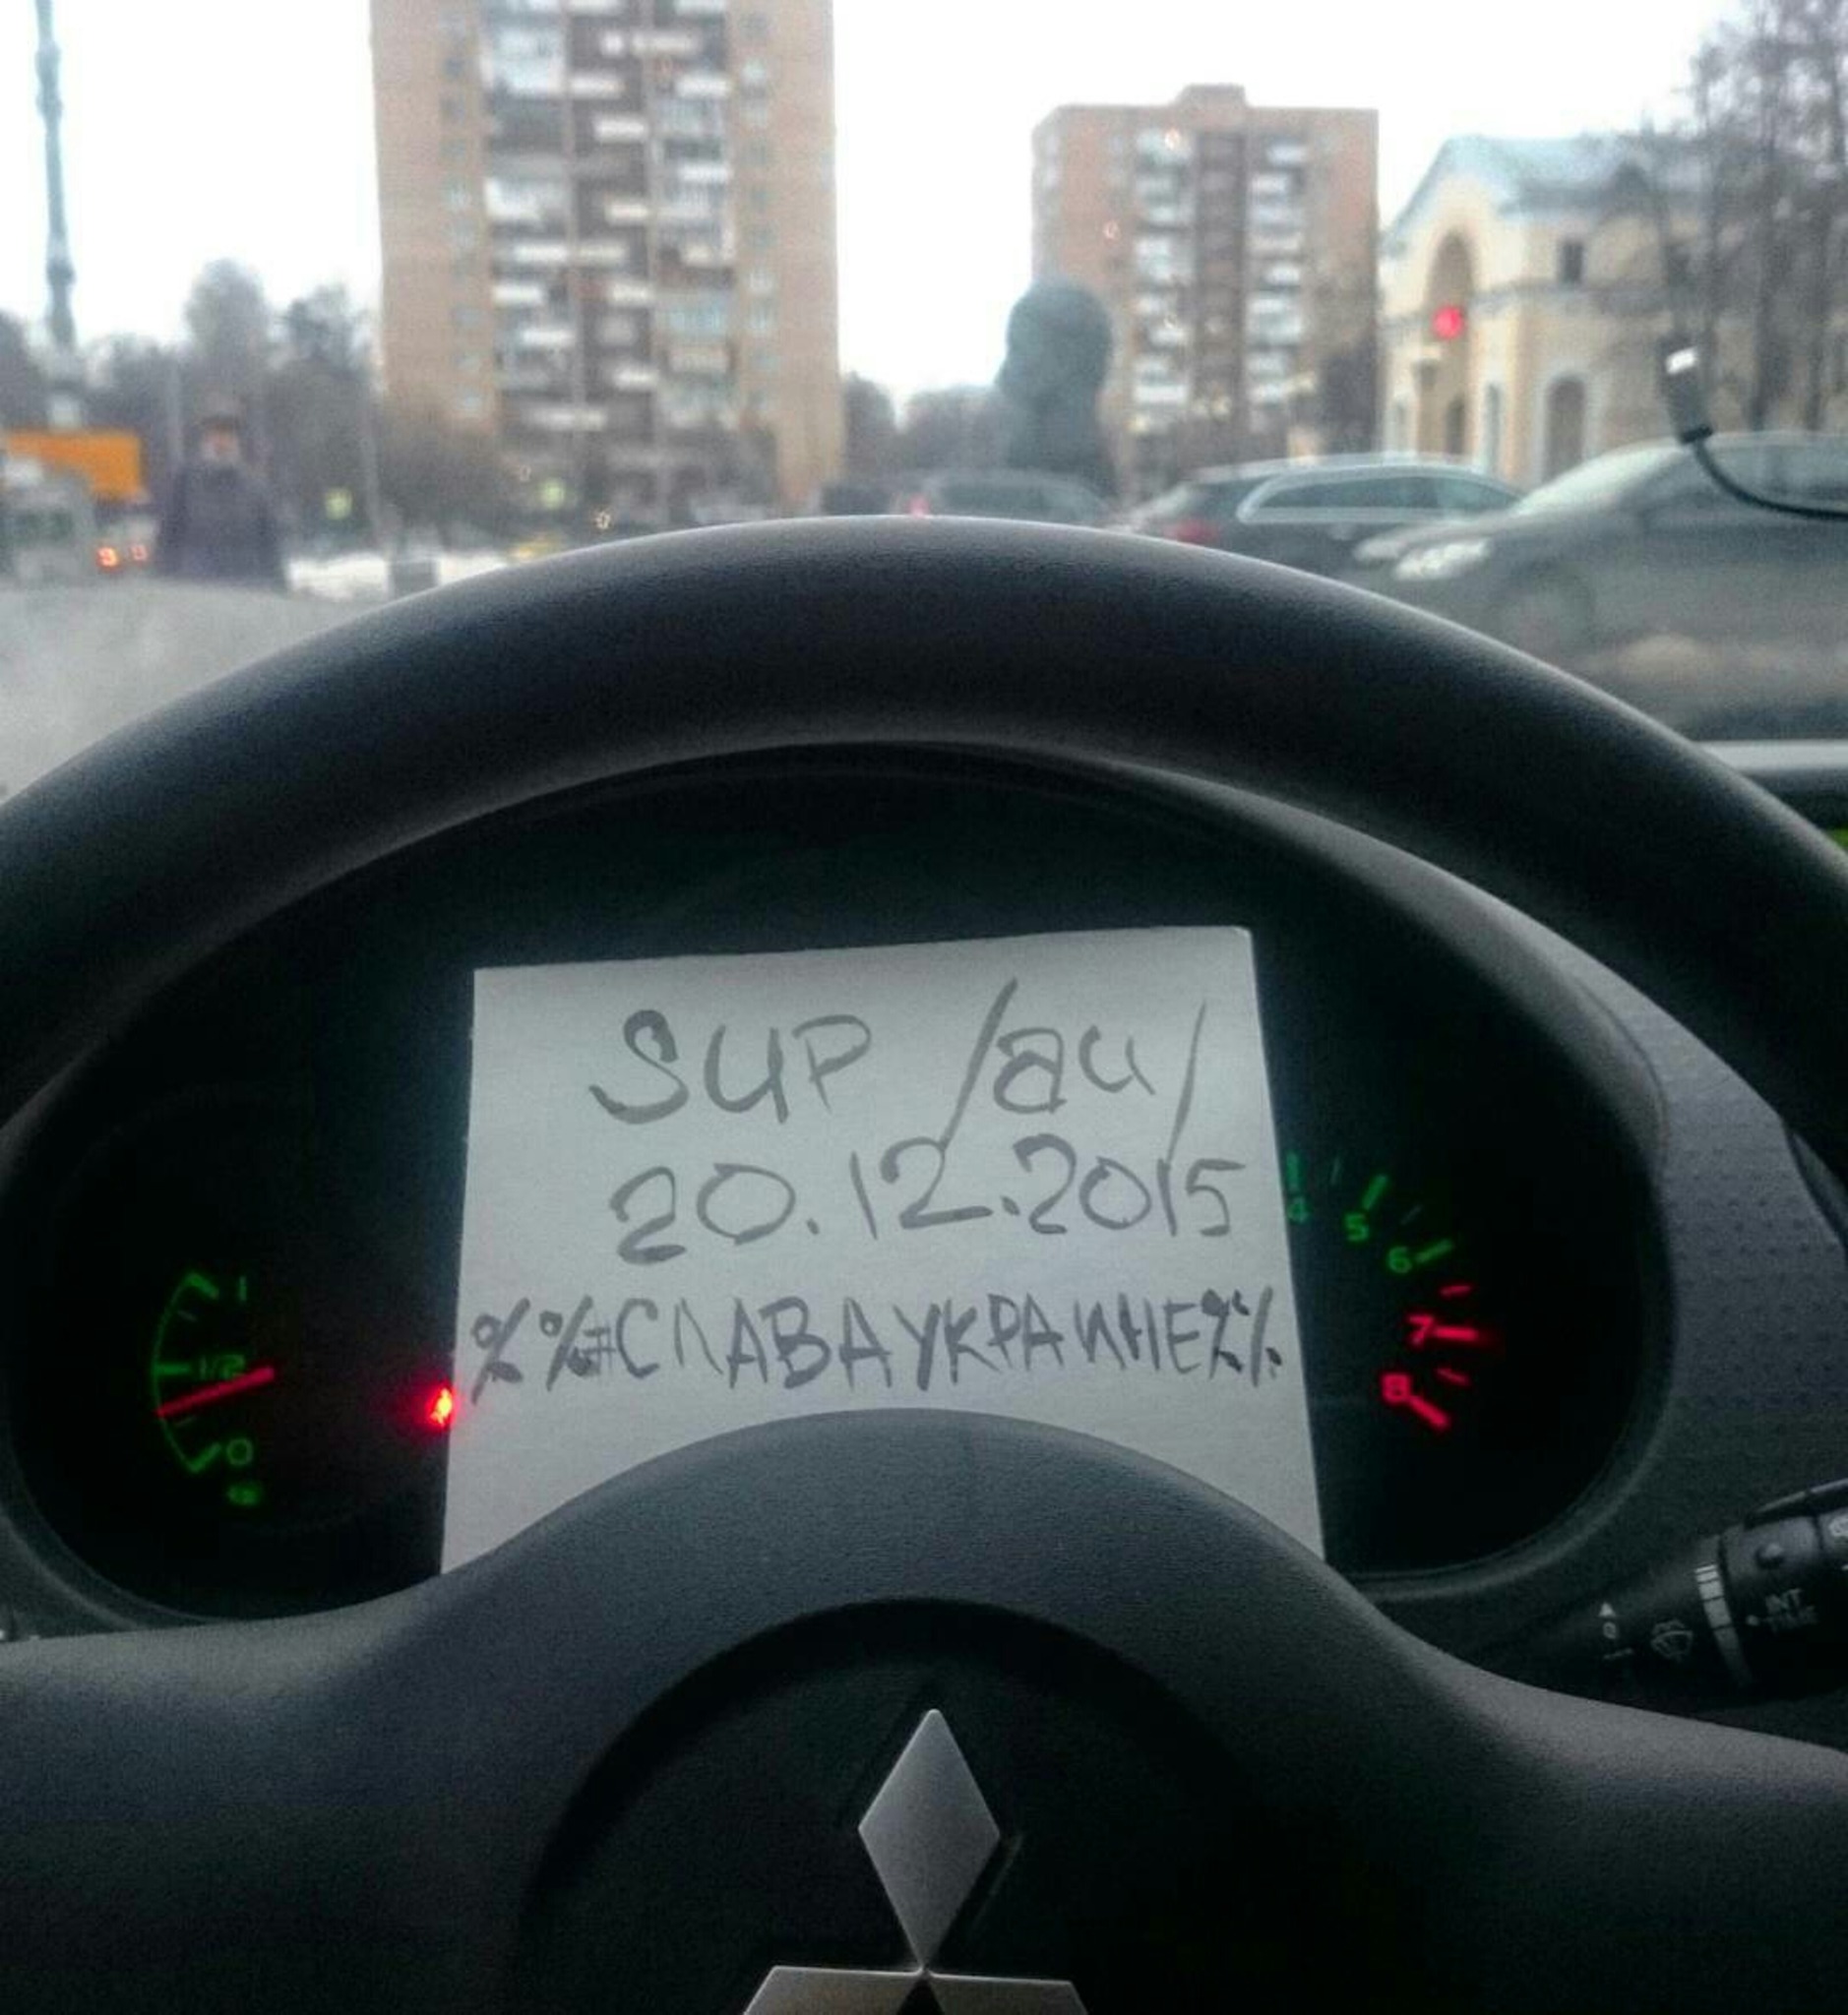 SUP /au/
20.12.2015
%%#СЛАВАУКРАИНЕ%%
1
1/2
0
4
5
6
7
8
INT